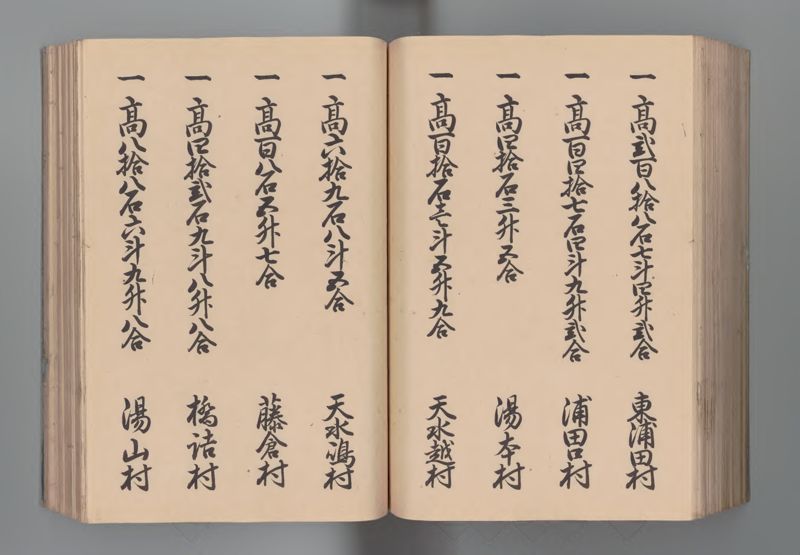 一 高弐百八拾八石七斗四升弐合 東浦田村
一 高百四拾七石四斗九升弐合 浦田口村
一 高四拾石三升五合 湯本村
一 高百拾石壱斗五升九合 天水越村
一 高六拾九石八斗五合 天水嶋村
一 高百八石五升七合 藤倉村
一 高四拾弐石九斗八升八合 橋詰村
一 高八拾八石六斗九升八合 湯山村